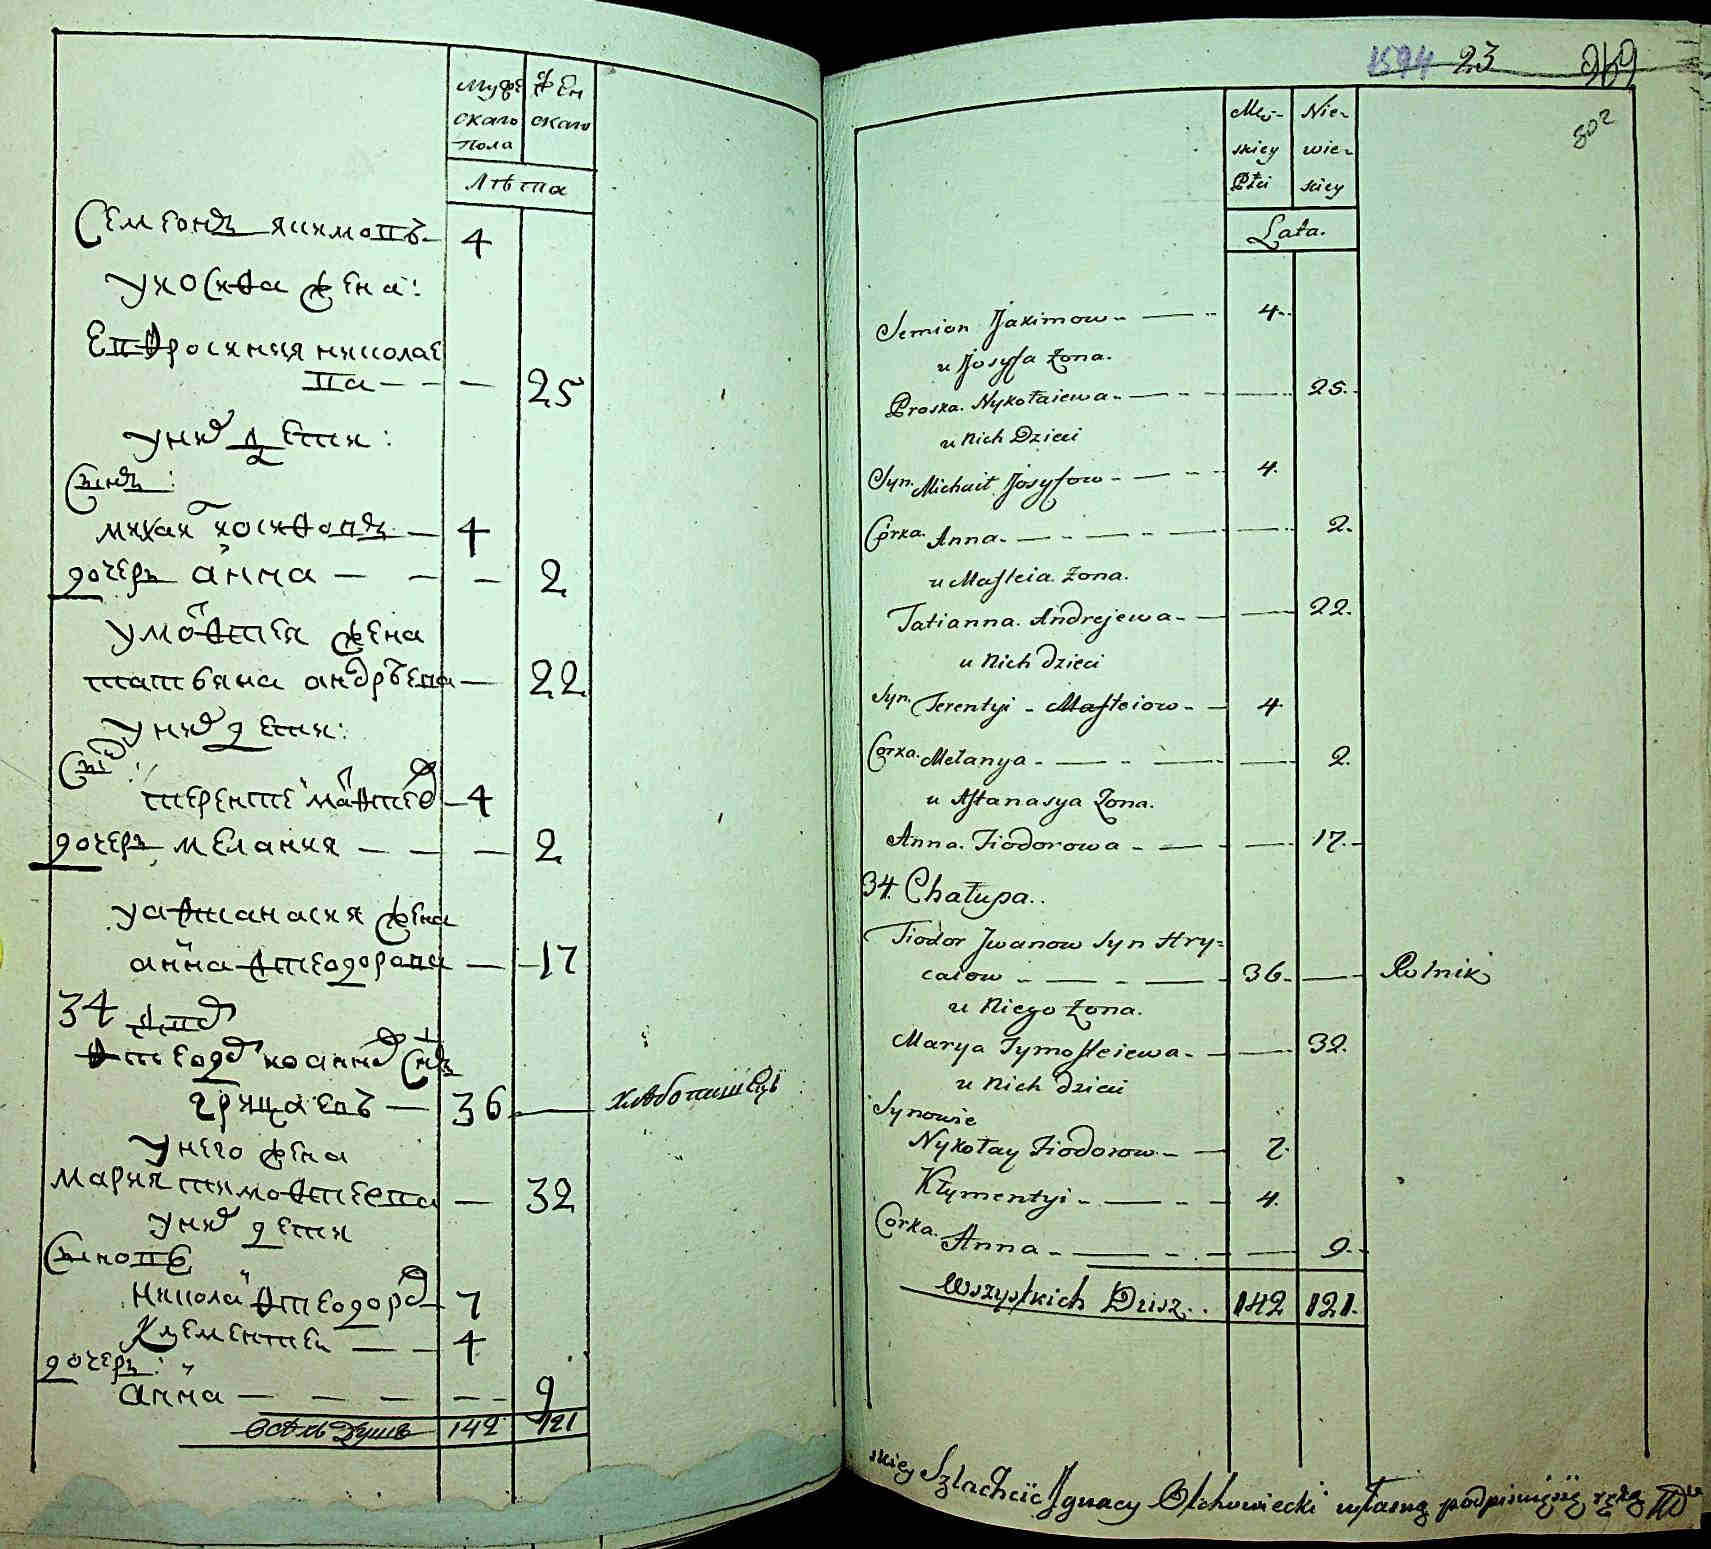 Муже
скаго
пола
жен
скаго
лѣта
Семіонъ якимовъ 4
у іосифа жена:
Епфросиния николае
ва — — — 25
у них дети:
Сынъ:
михаи иосифовъ — 4
дочеръ анна — — — 2
у мофтея жена
татьяна андрѣева — 22
у них дети:
Сын:
терентие мафтеов — 4
дочеръ мелания — — — 2
у афтанасия жена
анна фтеодорова — 17
34 двор
Фтеодор иоаннов Сынъ
грицаевъ — 36 — хлѣбопашецъ
у него жена
Мария тимофтеева — 32
у них дети
Сыновѣ
николаи фтеодоров 7
Клементеи — — 4
дочеръ:
анна — — — — — 9
всѣхъ душъ 142 121
1594 23 969
802
Męż-
skiey
Płci
Nie-
wie-
skiey
Lata.
Semion Jakimow - — - 4.
u Josyfa żona.
Proska. Nykołaiewa - — - — 25.
u Nich Dzieci
Syn. Michaił Josyfow - — - 4.
Córka. Anna. - — - — - — 2.
u Mafteia. żona.
Tatianna. Andrejewa - — — 22.
u Nich dzieci
Syn. Terentyi - Mafteiow - — 4.
Corka. Mełanya - — - — — 2.
u Aftanasya Żona.
Anna. Fiodorowa - — - — 17.
34. Chałupa..
Fiodor Jwanow Syn Hry=
caiow — - — - — 36. — Rolnik
u Niego Żona.
Marya Tymofteiewa - — — 32.
u Nich dzieci
Synowie
Nykołay Fiodorow - — 7.
Kłymentyi - — - — 4.
Corka. Anna - — - — — 9.
Wszystkich Dusz.. 142 121.
skiey Szlachcic Jgnacy Olchowiecki własną podpisuięsię ręką